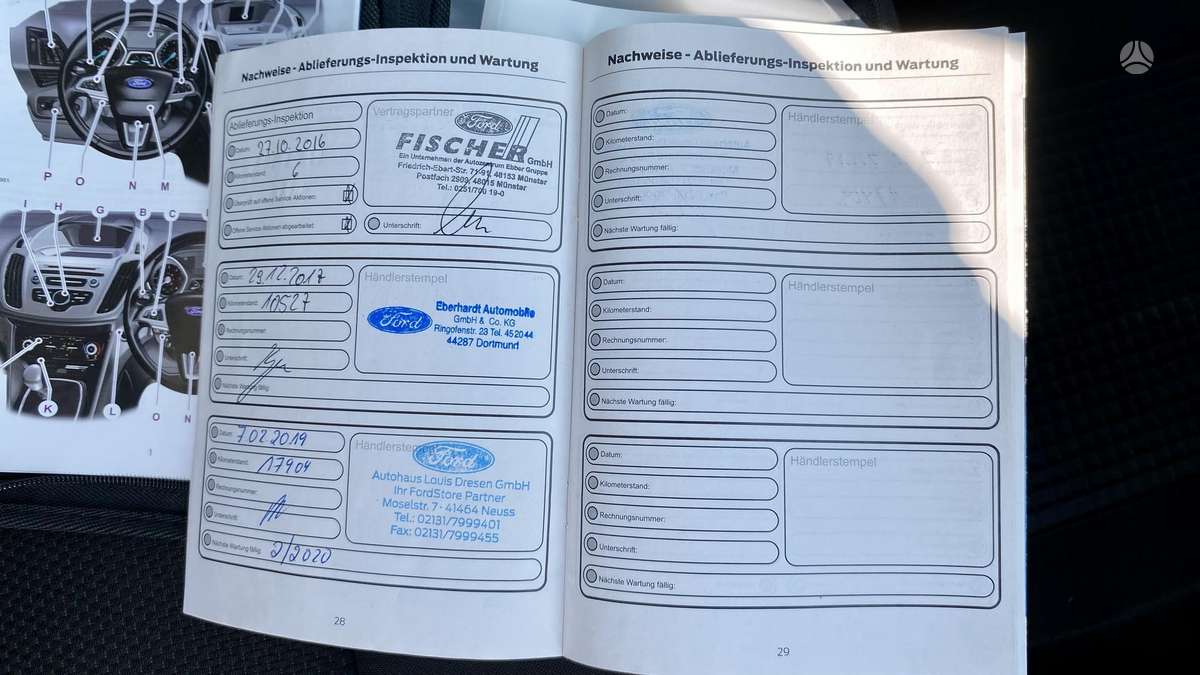 Nachweise - Ablieferungs-Inspektion und Wartung
Ablieferungs-Inspektion
Datum: 27.10.2016
Kilometerstand: 6
Überprüft auf offene Service Aktionen:
Offene Service Aktionen abgearbeitet:
Vertragspartner
Ford
FISCHER GmbH
Ein Unternehmen der Autozentrum Ebber Gruppe
Friedrich-Ebert-Str. 71-91, 48153 Münster
Postfach 2909, 48015 Münster
Tel.: 0251/700 19-0
Unterschrift:
Datum: 29.12.2017
Kilometerstand: 10527
Rechnungsnummer:
Unterschrift:
Nächste Wartung fällig:
Händlerstempel
Ford
Eberhardt Automobile
GmbH & Co. KG
Ringofenstr. 23 Tel. 452044
44287 Dortmund
Datum: 7.02.2019
Kilometerstand: 17904
Rechnungsnummer:
Unterschrift:
Nächste Wartung fällig: 2/2020
Händlerstempel
Ford
Autohaus Louis Dresen GmbH
Ihr FordStore Partner
Moselstr. 7 - 41464 Neuss
Tel.: 02131/7999401
Fax: 02131/7999455
28
Nachweise - Ablieferungs-Inspektion und Wartung
Datum:
Kilometerstand:
Rechnungsnummer:
Unterschrift:
Nächste Wartung fällig:
Händlerstempel
Datum:
Kilometerstand:
Rechnungsnummer:
Unterschrift:
Nächste Wartung fällig:
Händlerstempel
Datum:
Kilometerstand:
Rechnungsnummer:
Unterschrift:
Nächste Wartung fällig:
Händlerstempel
29
Ford
P O N M
I H G B C
Ford
K L O N
1